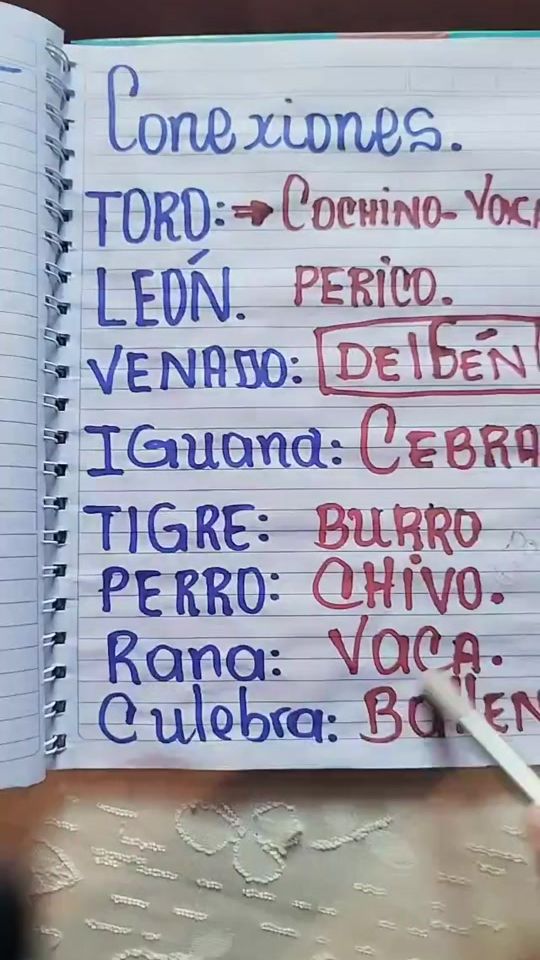 Conexiones.
TORO:→ COCHINO- VACA
LEÓN. PERICO.
VENADO: DElfÉN
IGuana: CEBRA
TIGRE: BURRO
PERRO: CHIVO.
Rana: VaCA.
Culebra: BallEN